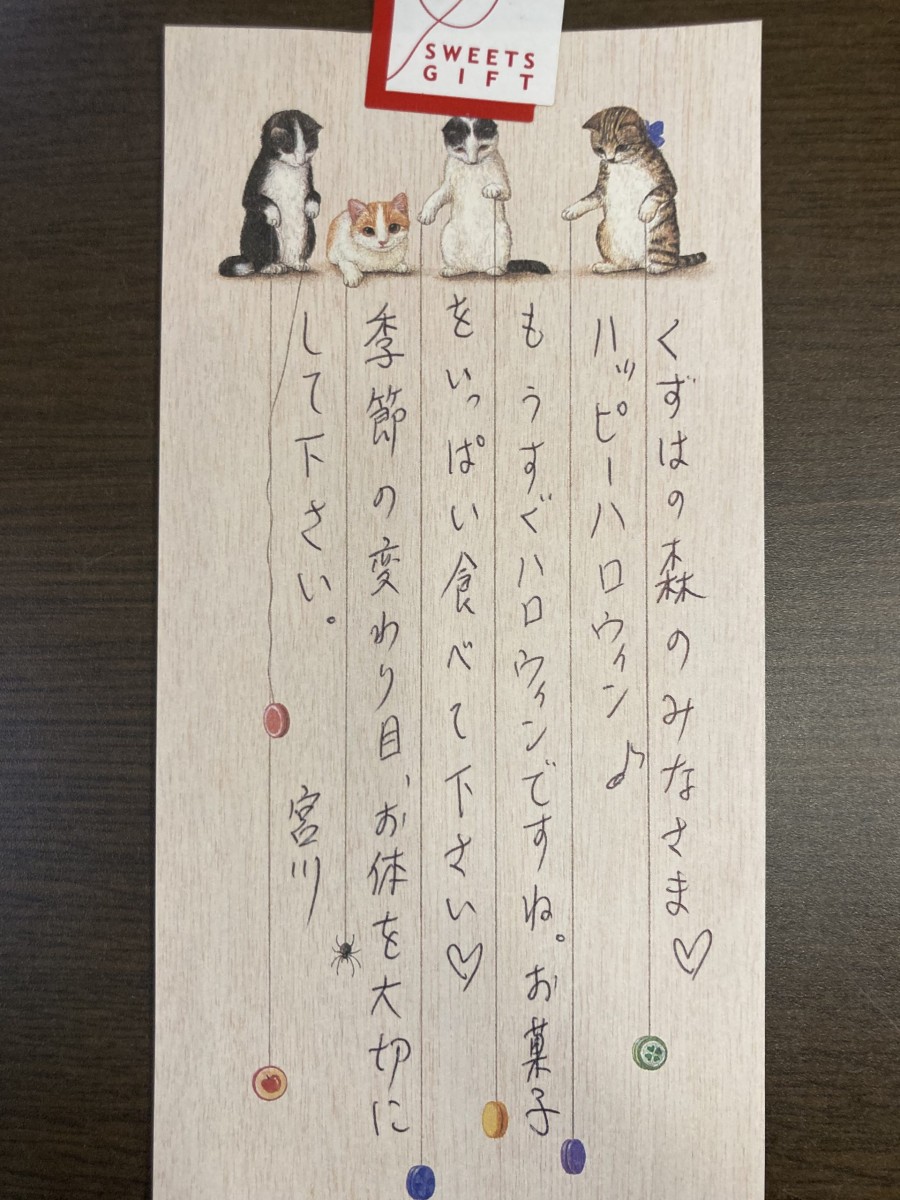 SWEETS
GIFT
くずはの森のみなさま♡
ハッピーハロウィン♪
もうすぐハロウィンですね。お菓子
をいっぱい食べて下さい♡
季節の変わり目、お体を大切に
して下さい。
宮川